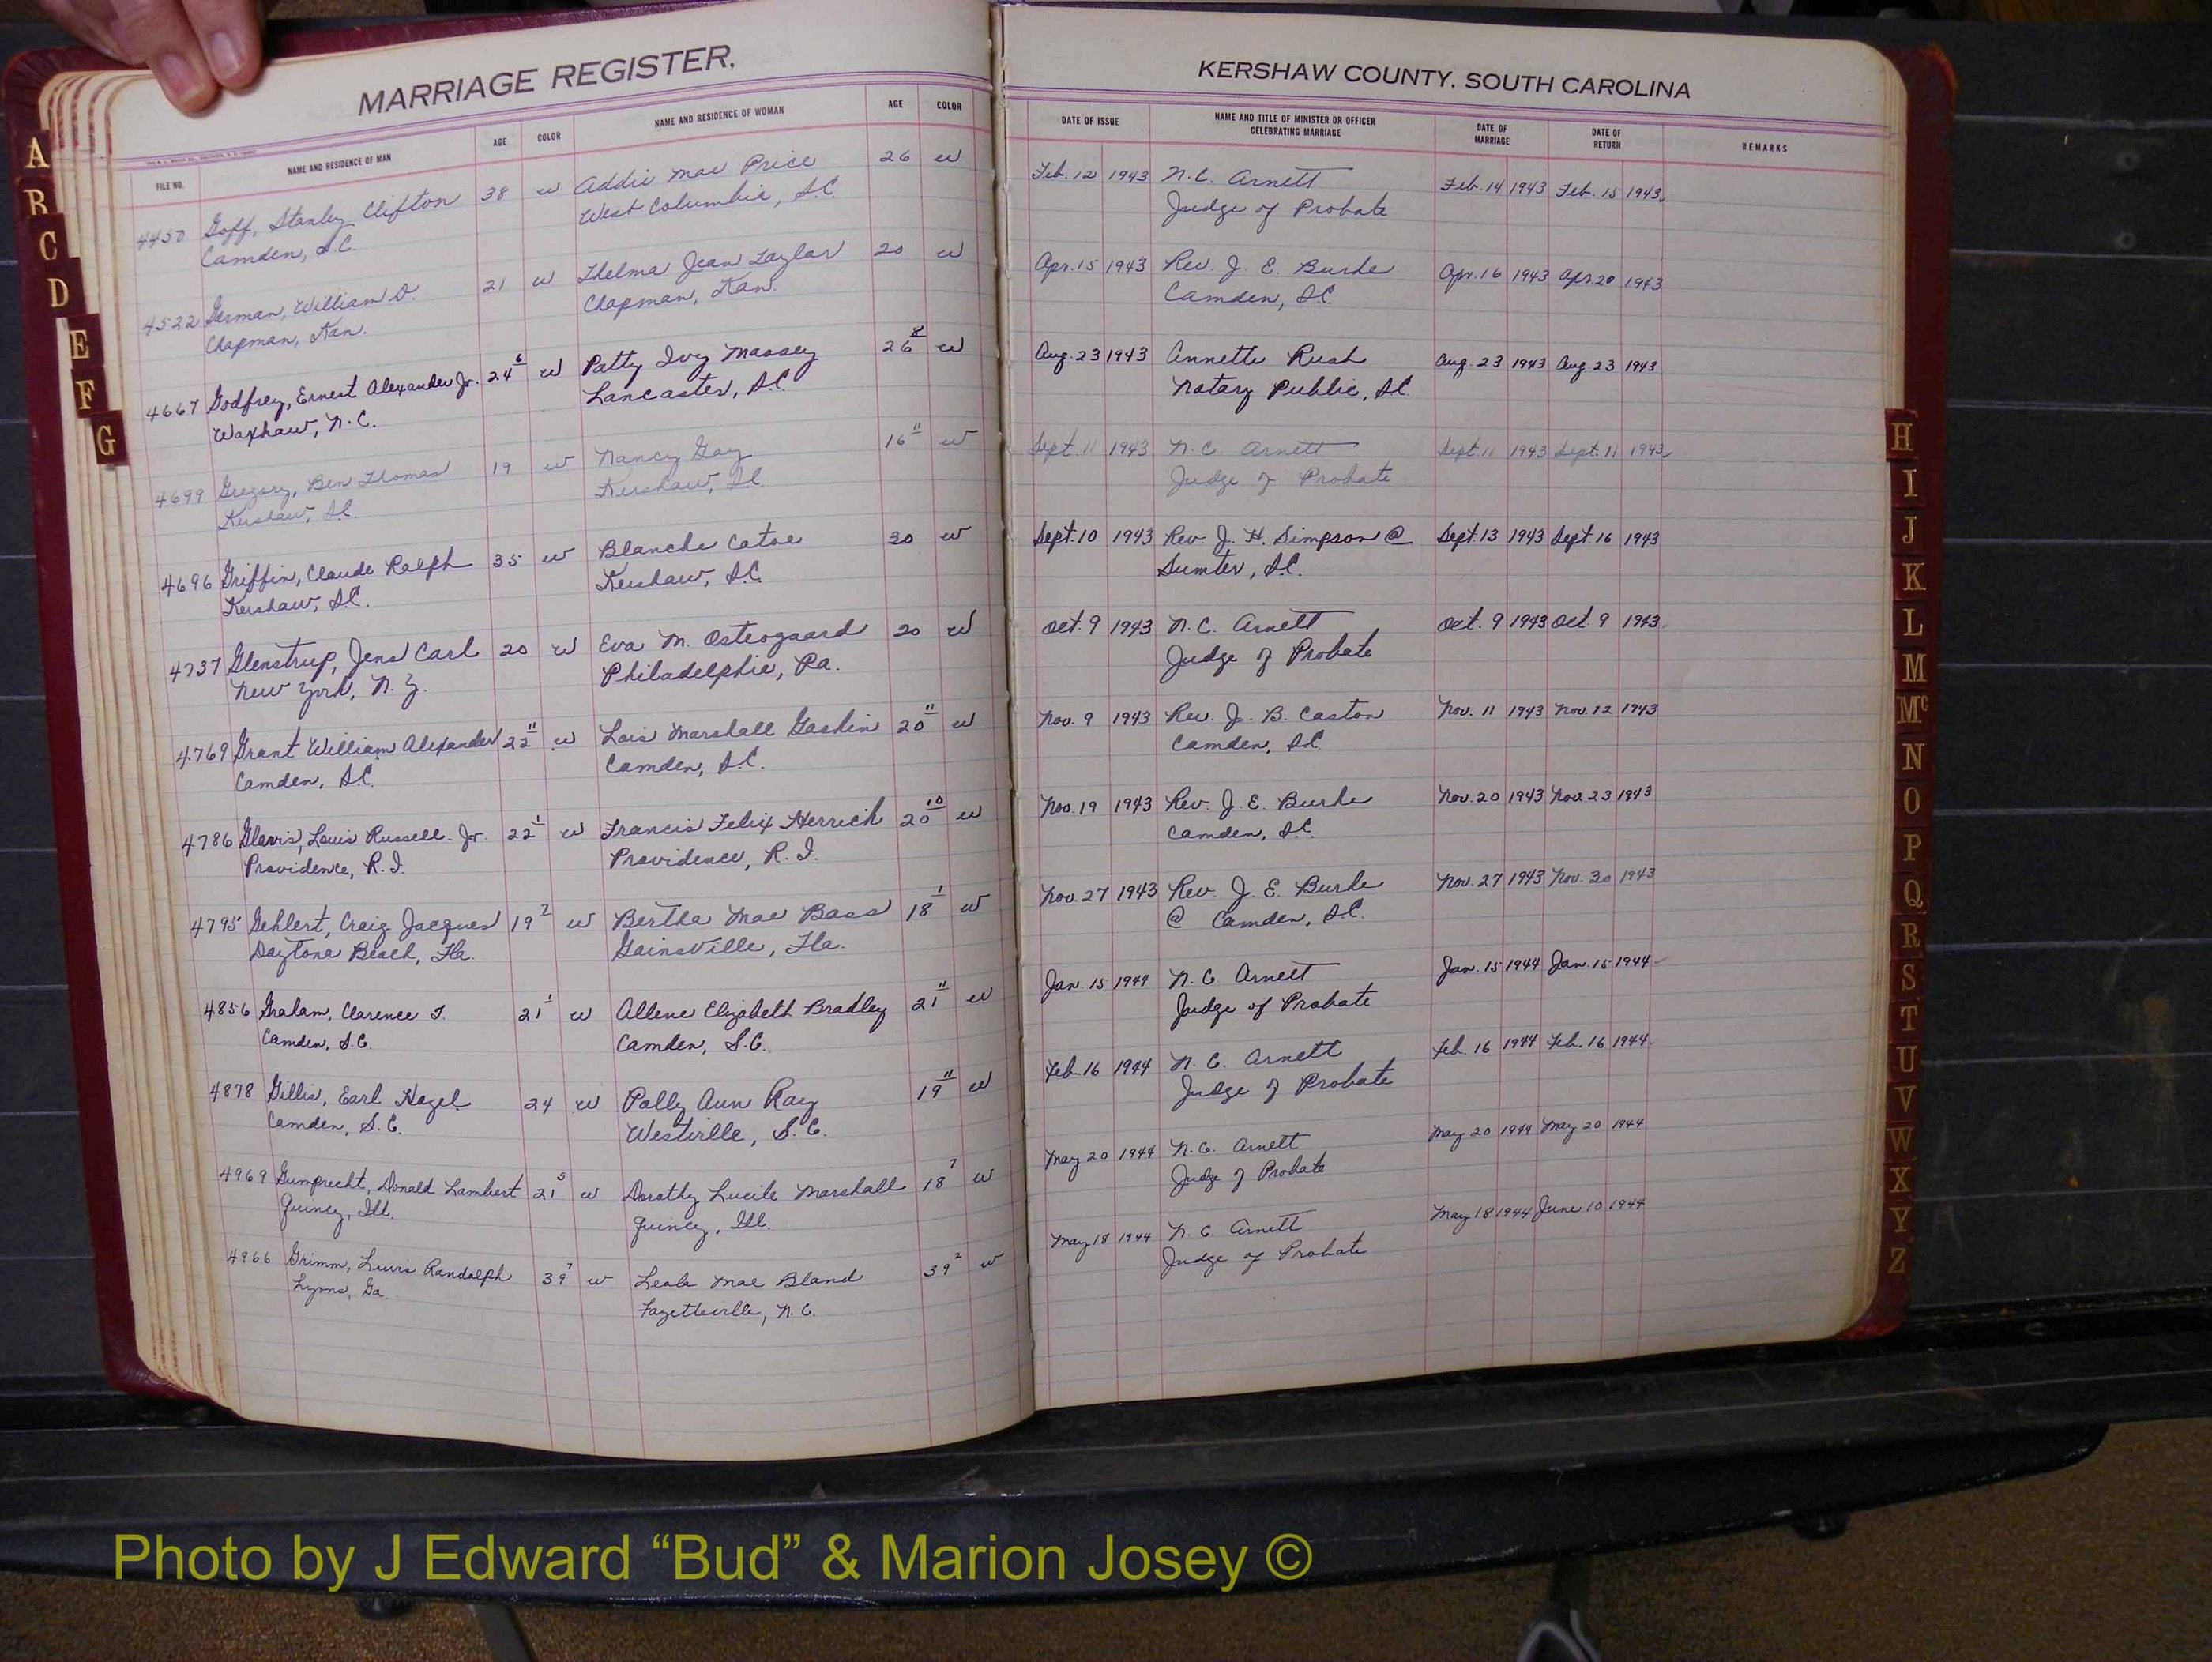 MARRIAGE REGISTER.
KERSHAW COUNTY, SOUTH CAROLINA
FILE NO. NAME AND RESIDENCE OF MAN AGE COLOR NAME AND RESIDENCE OF WOMAN AGE COLOR DATE OF ISSUE NAME AND TITLE OF MINISTER OR OFFICER CELEBRATING MARRIAGE DATE OF MARRIAGE DATE OF RETURN REMARKS
4450 Goff, Stanley Clifton 38 w Addie Mae Price 26 w Feb. 12 1943 N.C. Arnett Feb. 14 1943 Feb. 15 1943
Camden, S.C. West Columbia, S.C. Judge of Probate
4522 German, William D. 21 w Thelma Jean Taylor 20 w Apr. 15 1943 Rev. J. E. Burke Apr. 16 1943 Apr. 20 1943
Chapman, Kan. Chapman, Kan. Camden, S.C.
4667 Godfrey, Ernest Alexander Jr. 24 6 w Patty Ivy Massey 26 8 w Aug. 23 1943 Annette Rush Aug. 23 1943 Aug. 23 1943
Waxhaw, N.C. Lancaster, S.C. Notary Public, S.C.
4699 Gregory, Ben Thomas 19 w Nancy Gay 16 11 w Sept. 11 1943 N.C. Arnett Sept. 11 1943 Sept. 11 1943
Kershaw, S.C. Kershaw, S.C. Judge of Probate
4696 Griffin, Claude Ralph 35 w Blanche Catoe 30 w Sept. 10 1943 Rev. J. H. Simpson @ Sept. 13 1943 Sept. 16 1943
Kershaw, S.C. Kershaw, S.C. Sumter, S.C.
4737 Glenstrup, Jens Carl 20 w Eva M. Osteogaard 20 w Oct. 9 1943 N.C. Arnett Oct. 9 1943 Oct. 9 1943
New York, N.Y. Philadelphia, Pa. Judge of Probate
4769 Grant William Alexander 22 11 w Lois Marshall Gaskin 20 11 w Nov. 9 1943 Rev. J. B. Caston Nov. 11 1943 Nov. 12 1943
Camden, S.C. Camden, S.C. Camden, S.C.
4786 Glavis, Louis Russell Jr. 22 1 w Francis Felix Herrick 20 10 w Nov. 19 1943 Rev. J. E. Burke Nov. 20 1943 Nov. 23 1943
Providence, R.I. Providence, R.I. Camden, S.C.
4795 Gehlert, Craig Jacques 19 2 w Bertha Mae Bass 18 1 w Nov. 27 1943 Rev. J. E. Burke Nov. 27 1943 Nov. 30 1943
Daytona Beach, Fla. Gainsville, Fla. @ Camden, S.C.
4856 Graham, Clarence T. 21 1 w Allene Elizabeth Bradley 21 11 w Jan. 15 1944 N.C. Arnett Jan. 15 1944 Jan. 15 1944
Camden, S.C. Camden, S.C. Judge of Probate
4878 Gillis, Earl Hazel 24 w Polly Ann Ray 19 11 w Feb. 16 1944 N.C. Arnett Feb. 16 1944 Feb. 16 1944
Camden, S.C. Westville, S.C. Judge of Probate
4969 Gumprecht, Donald Lambert 21 5 w Dorothy Lucile Marshall 18 7 w May 20 1944 N.C. Arnett May 20 1944 May 20 1944
Quincy, Ill. Quincy, Ill. Judge of Probate
4966 Grimm, Lewis Randolph 39 7 w Mae Bland 39 2 w May 18 1944 N.C. Arnett May 18 1944 June 10 1944
Lyons, Ga. Fayetteville, N.C. Judge of Probate
A
B
C
D
E
F
G
H
I
J
K
L
M
Mc
N
O
P
Q
R
S
T
U
V
W
X
Y
Z
Photo by J Edward “Bud” & Marion Josey ©